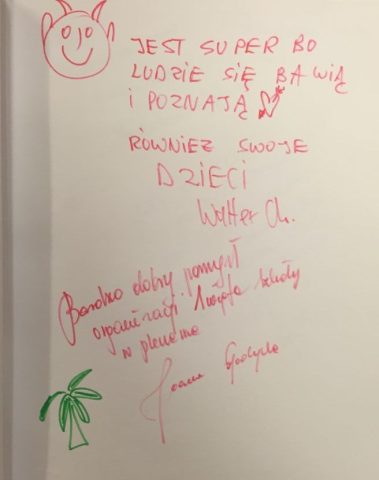 JEST SUPER BO
LUDZIE SIĘ BAWIĄ
I POZNAJĄ
RÓWNIEŻ SWOJE
DZIECI
Walter Ch.
Bardzo dobry pomysł
organizacji Święta Szkoły
w plenerze
Joanna